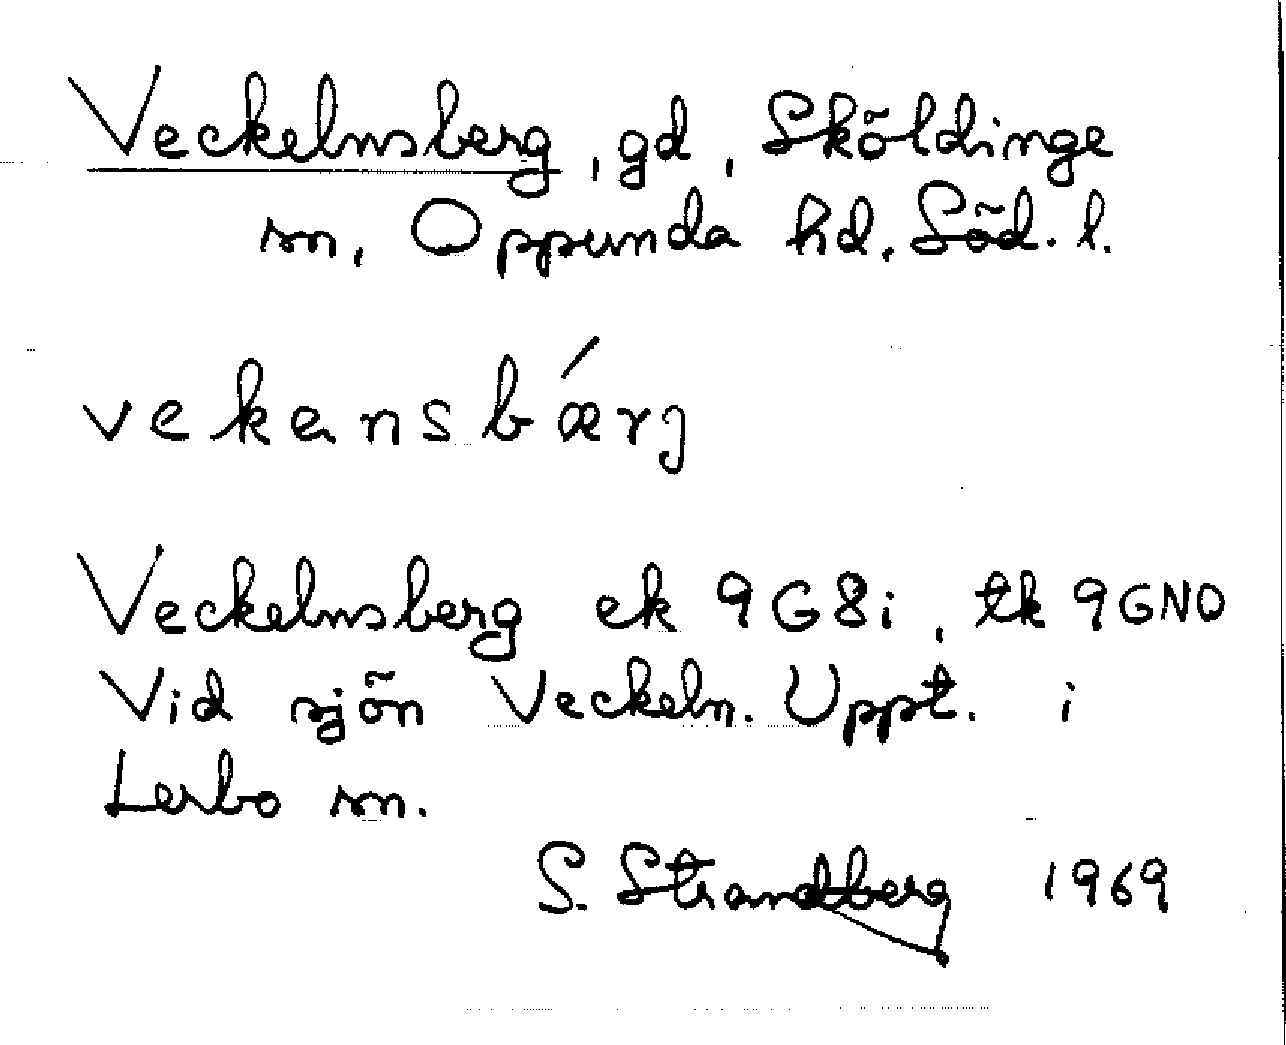 Veckelnsberg, gd, Sköldinge
sn, Oppunda hd, Söd. l.
vekensbǽrj
Veckelnsberg ek 9G8i, tk 9GNO
Vid sjön Veckeln. Uppt. i
Lerbo sn.
S. Strandberg 1969